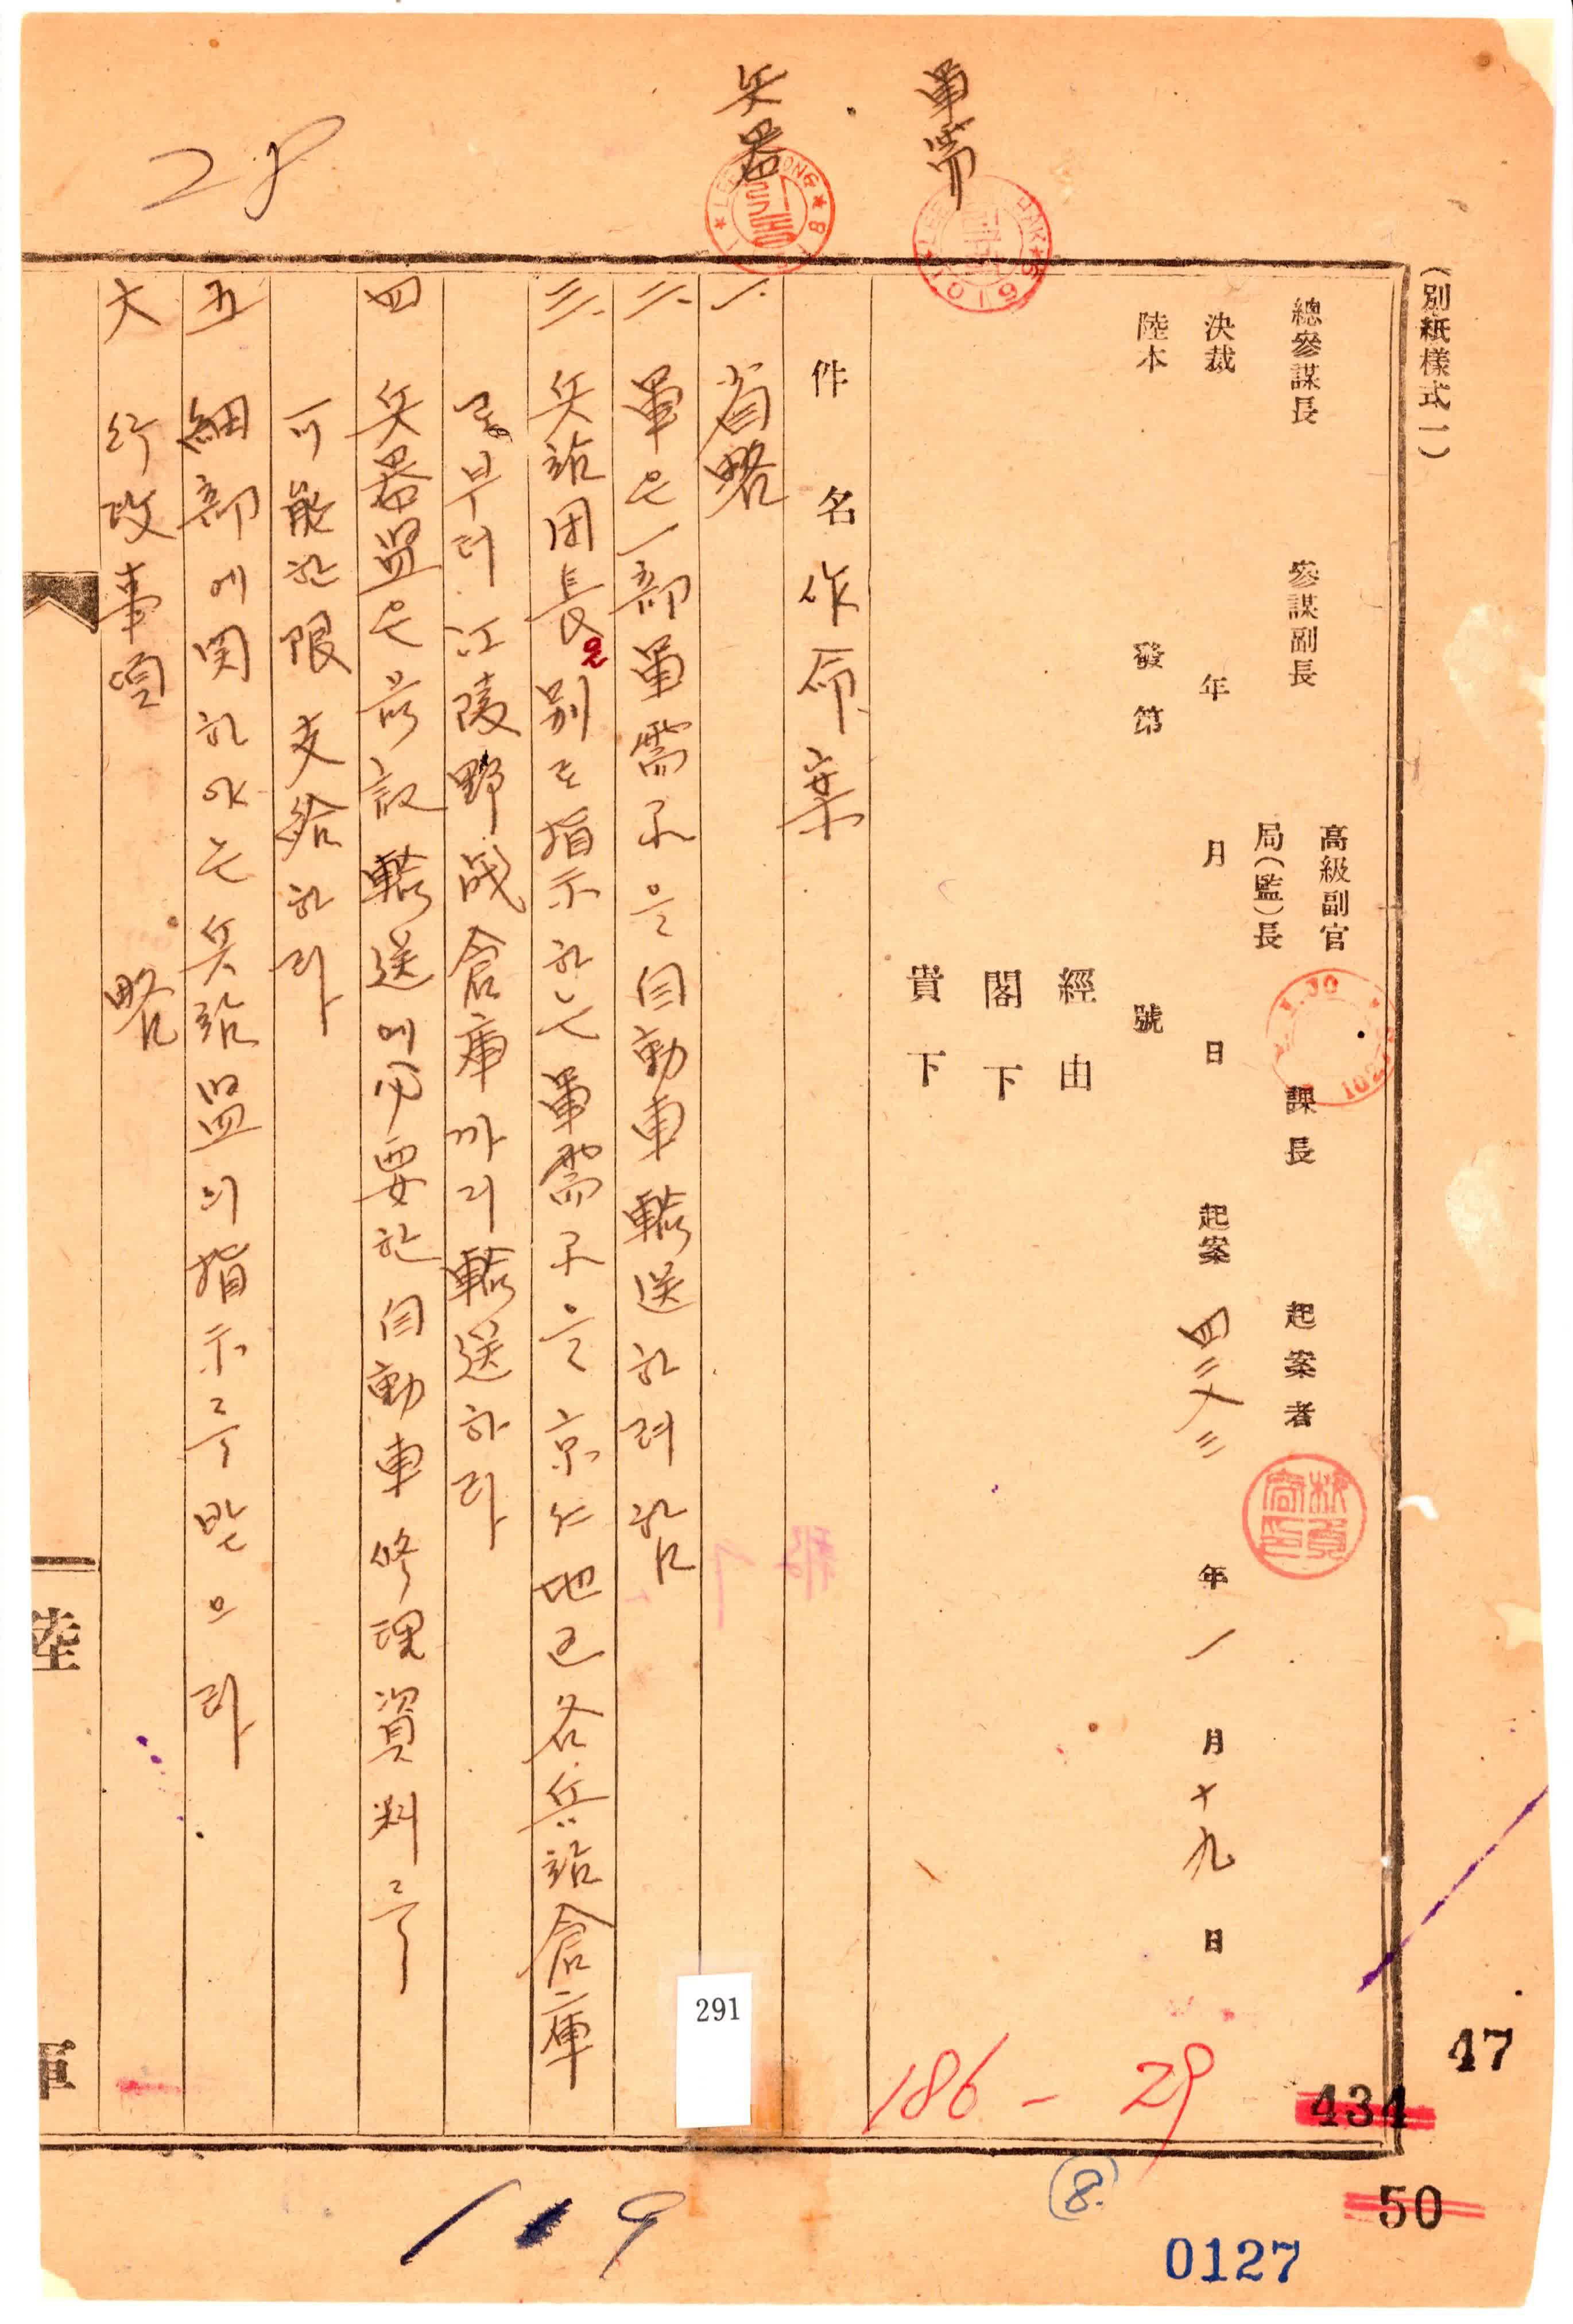 (別紙樣式一)
軍需
兵器
28
總參謀長 參謀副長 高級副官 課長 起案者
局(監)長
決裁 年 月 日 起案 四二八三 年 一 月 十九 日
陸本 發第 號
經由
閣下
貴下
件名 作命案
一. 省略
二. 軍은 一部 軍需品을 自動車 輸送하려 함
三. 兵站団長은 別로 指示하는 軍需品을 京仁地區 各 兵站倉庫
로부터 江陵野戰倉庫까지 輸送하라
四 兵器監은 前記 輸送에 必要한 自動車 修理資料를
可能한 限 支給하라
五 細部에 関하야는 兵站監의 指示를 받으라
六 行政事項 略
陸
軍
291
186 - 29
434
47
50
8.
0127